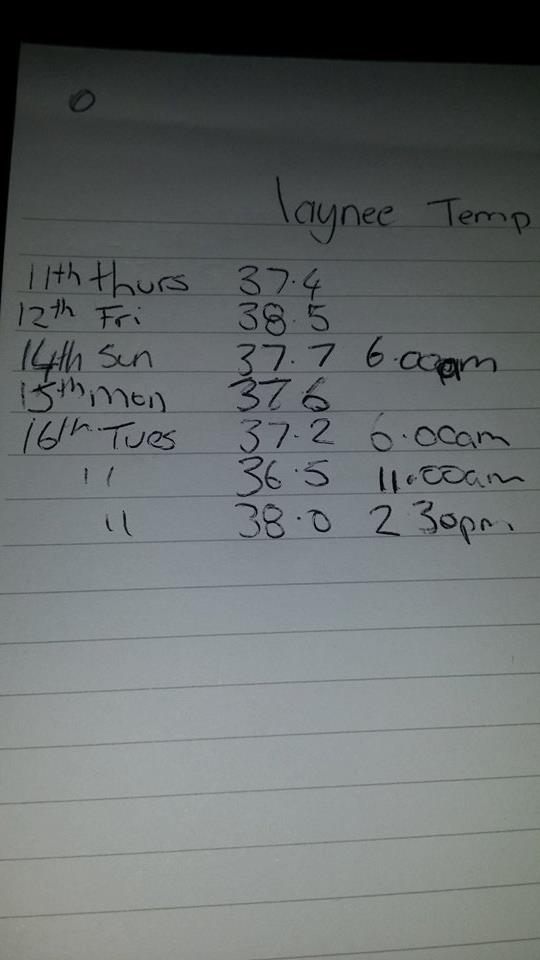 0
Laynee Temp
11th thurs 37.4
12th Fri 38.5
14th Sun 37.7 6.00pm
15th mon 37.6
16th Tues 37.2 6.00am
11 36.5 11.00am
11 38.0 2 30pm